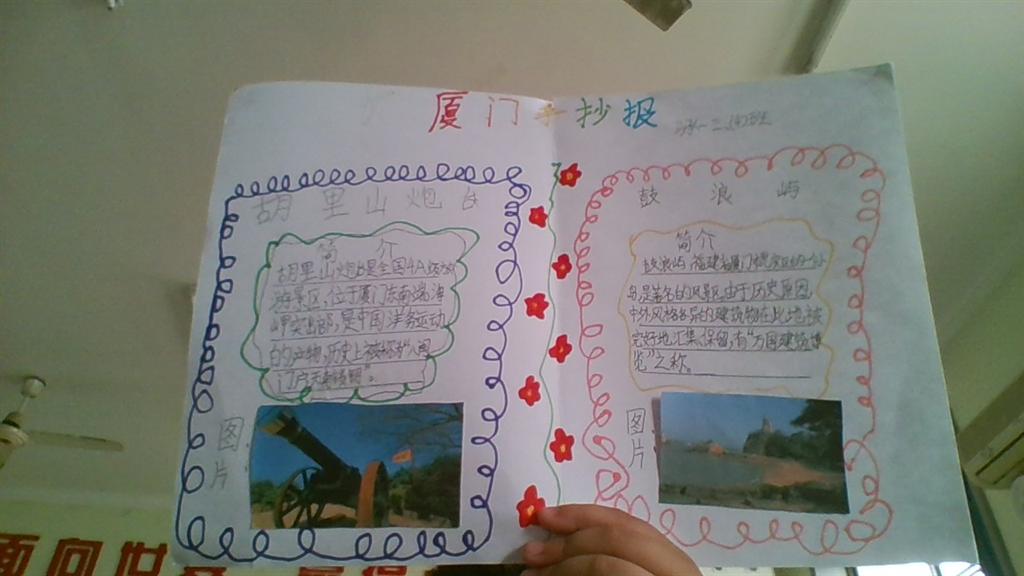 厦门手抄报
胡里山炮台
简介
胡里山炮台是全国4A级旅
游景区,位于厦门东南端海
岬突出部,是中国洋务运动
的产物,历史上被称为"八闽
图片
鼓浪屿
简介
鼓浪屿,福建省厦门
岛,是著名的风景区,由于历史原因,
中外风格各异的建筑物在此地被
完好地汇集、保留,有"万国建筑博
览"之称。
图片
面向世